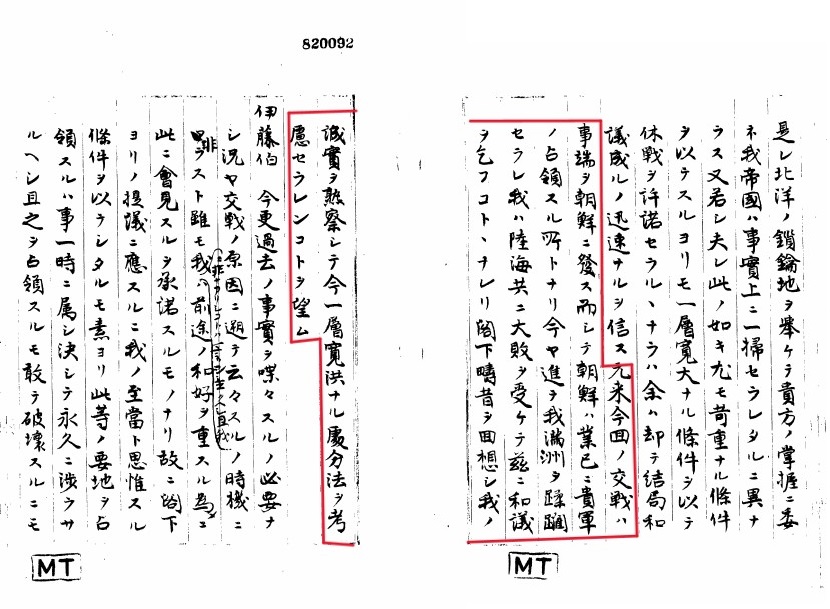 820092
是レ北洋ノ鎖鑰地ヲ擧ケテ貴方ノ掌握ニ委
ネ我帝國ハ事實上ニ一掃セラレタルニ異ナ
ラス又若シ夫レ此ノ如キ尤モ苛重ナル條件
ヲ以テスルヨリモ一層寛大ナル條件ヲ以テ
休戰ヲ許諾セラルヽナラハ余ハ却テ結局和
議成ルノ迅速ナルヲ信ス元来今回ノ交戰ハ
事端ヲ朝鮮ニ發ス而シテ朝鮮ハ業已ニ貴軍
ノ占領スル所トナリ今ヤ進テ我滿洲ヲ蹂躙
セラレ我ハ陸海共ニ大敗ヲ受ケテ茲ニ和議
ヲ乞フコトヽナレリ閣下疇昔ヲ回想シ我ノ
MT
誠實ヲ熟察シテ今一層寛洪ナル處分法ヲ考
慮セラレンコトヲ望ム
伊藤伯 今更過去ノ事實ヲ喋々スルノ必要ナ
シ況ヤ交戰ノ原因ニ遡テ云々スルノ時機ニ
非ラスト雖モ我ハ前途ノ和好ヲ重スル為ニ
此ニ會見スルヲ承諾スルモノナリ故ニ閣下
ヨリノ提議ニ應スルニ我ノ至當ト思惟スル
條件ヲ以テシタルモ素ヨリ此等ノ要地ヲ占
領スルハ事一時ニ属シ決シテ永久ニ涉ラサ
ルヘシ且之ヲ占領スルモ敢テ破壞スルニモ
MT